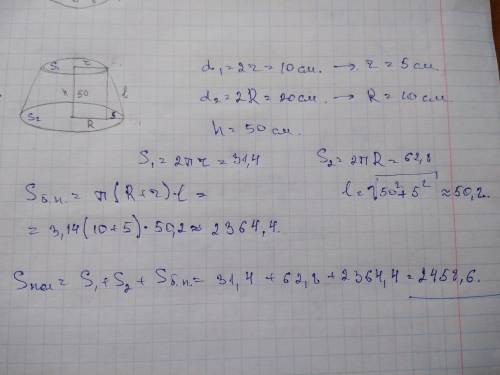 S₁ r
h 50 l
S₂ R 5
d₁ = 2r = 10 см. → r = 5 см.
d₂ = 2R = 20 см. → R = 10 см.
h = 50 см.
S₁ = 2πr = 31,4 S₂ = 2πR = 62,8
Sб.п. = π(R+r)·l = l = √50²+5² ≈ 50,2.
= 3,14(10+5)·50,2 ≈ 2364,4.
Sпол = S₁ + S₂ + Sб.п. = 31,4 + 62,8 + 2364,4 = 2458,6.